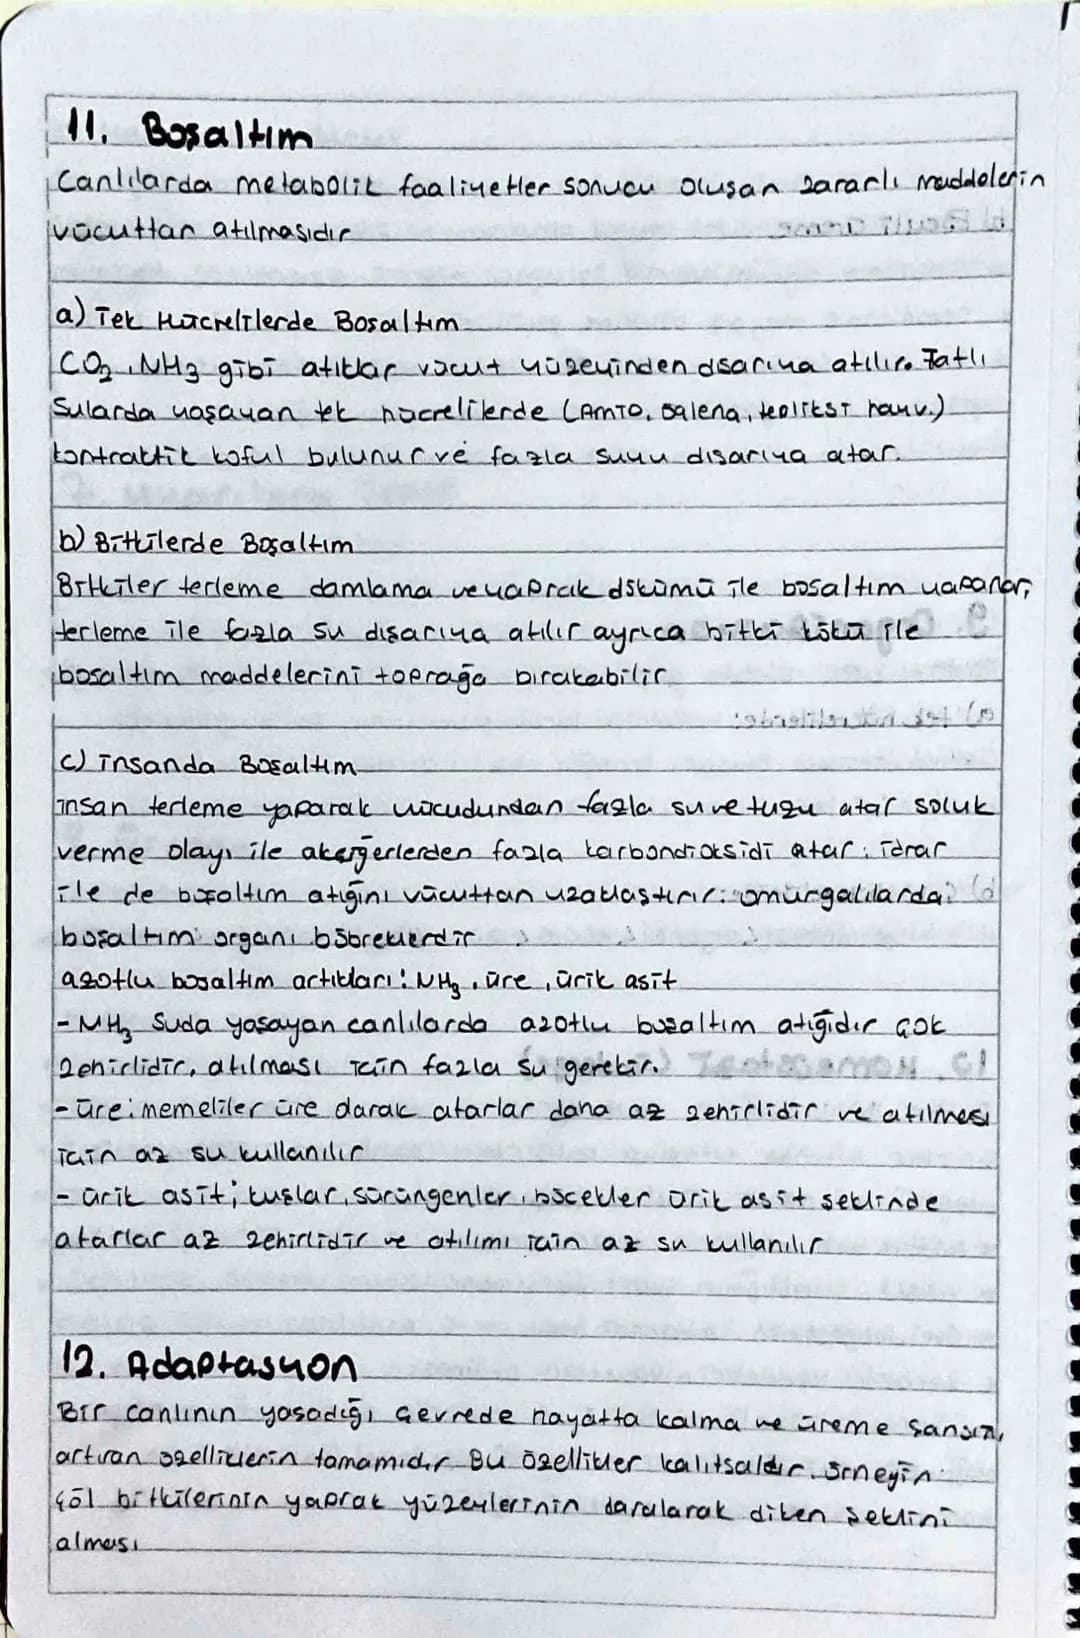 11. Boşaltım
Canlılarda metabolik faaliyetler sonucu oluşan zararlı maddelerin
vücuttan atılmasıdır
a) Tek Hücrelilerde Boşaltım
CO2, NH3 gibi atıklar vücut yüzeyinden dışarıya atılır. Tatlı
Sularda yaşayan tek hücrelilerde (Amip, öglena, terliksi hayv.)
kontraktil koful bulunur ve fazla suyu dışarıya atar.
b) Bitkilerde Boşaltım
Bitkiler terleme damlama ve yaprak dökümü ile boşaltım yaparlar,
terleme ile fazla su dışarıya atılır ayrıca bitki kökü ile
boşaltım maddelerini toprağa bırakabilir
c) insanda Boşaltım
insan terleme yaparak vücudundan fazla su ve tuzu atar soluk
verme olayı ile akciğerlerden fazla karbondioksidi atar, idrar
ile de boşaltım atığını vücuttan uzaklaştırır. omurgalılarda
boşaltım organı böbreklerdir
azotlu boşaltım artıkları: NH3, üre, ürik asit
- NH3 Suda yaşayan canlılarda azotlu boşaltım atığıdır çok
zehirlidir, atılması için fazla su gerekir.
- üre: memeliler üre olarak atarlar daha az zehirlidir ve atılması
için az su kullanılır
- ürik asit; kuşlar, sürüngenler, böcekler ürik asit şeklinde
atarlar az zehirlidir ve atılımı için az su kullanılır
12. Adaptasyon
Bir canlının yaşadığı çevrede hayatta kalma ve üreme şansını,
artıran özelliklerin tamamıdır Bu özellikler kalıtsaldır. örneğin
çöl bitkilerinin yaprak yüzeylerinin daralarak diken şeklini
alması